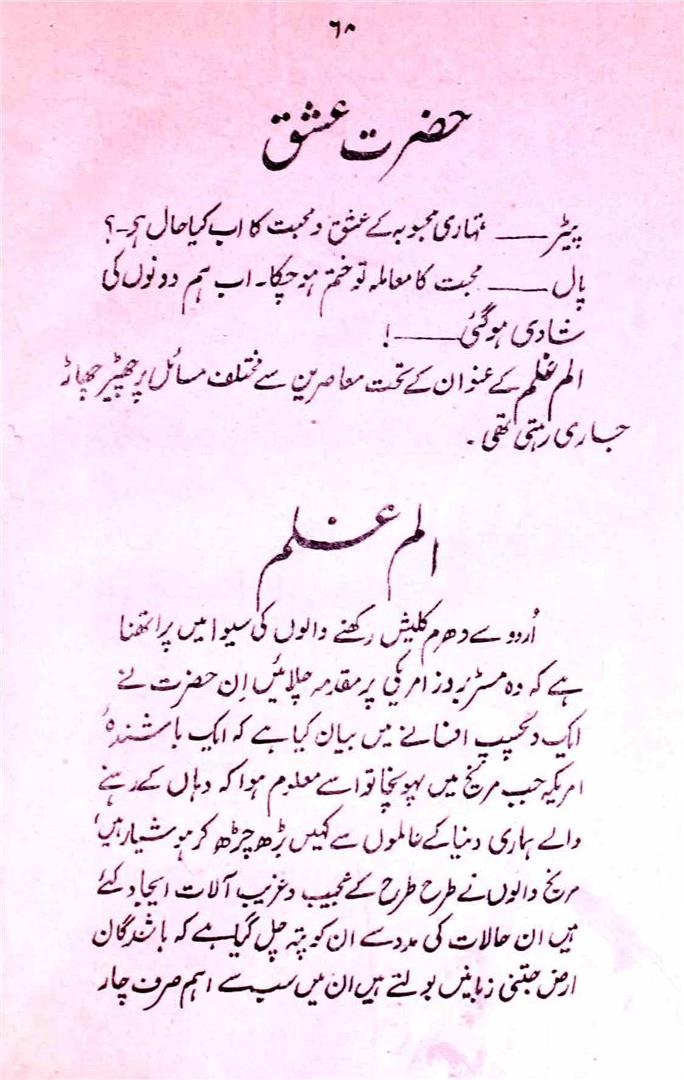 ۶۸
حضرت عشق
پیٹر —— تمہاری محبوبہ کے عشق و محبت کا اب کیا حال ہے۔؟
پال —— محبت کا معاملہ تو ختم ہو چکا۔ اب ہم دونوں کی
شادی ہو گئی —— !
الم غلم کے عنوان کے تحت معاصرین سے مختلف مسائل پر چھیڑ چھاڑ
جاری رہتی تھی۔
الم غلم
اُردو سے دھرم کلیش رکھنے والوں کی سیوا میں پراتھنا
ہے کہ وہ مسٹر بروز امریکی پر مقدمہ چلائیں اِن حضرت نے
ایک دلچسپ افسانے میں بیان کیا ہے کہ ایک باشندہٗ
امریکہ جب مریخ میں پہونچا تو اسے معلوم ہوا کہ وہاں کے رہنے
والے ہماری دنیا کے عالموں سے کہیں بڑھ چڑھ کر ہوشیار ہیں،
مریخ والوں نے طرح طرح کے عجیب و غریب آلات ایجاد کئے
ہیں ان حالات کی مدد سے ان کو پتہ چل گیا ہے کہ باشندگان
ارض جتنی زبانیں بولتے ہیں ان میں سب سے اہم صرف چار